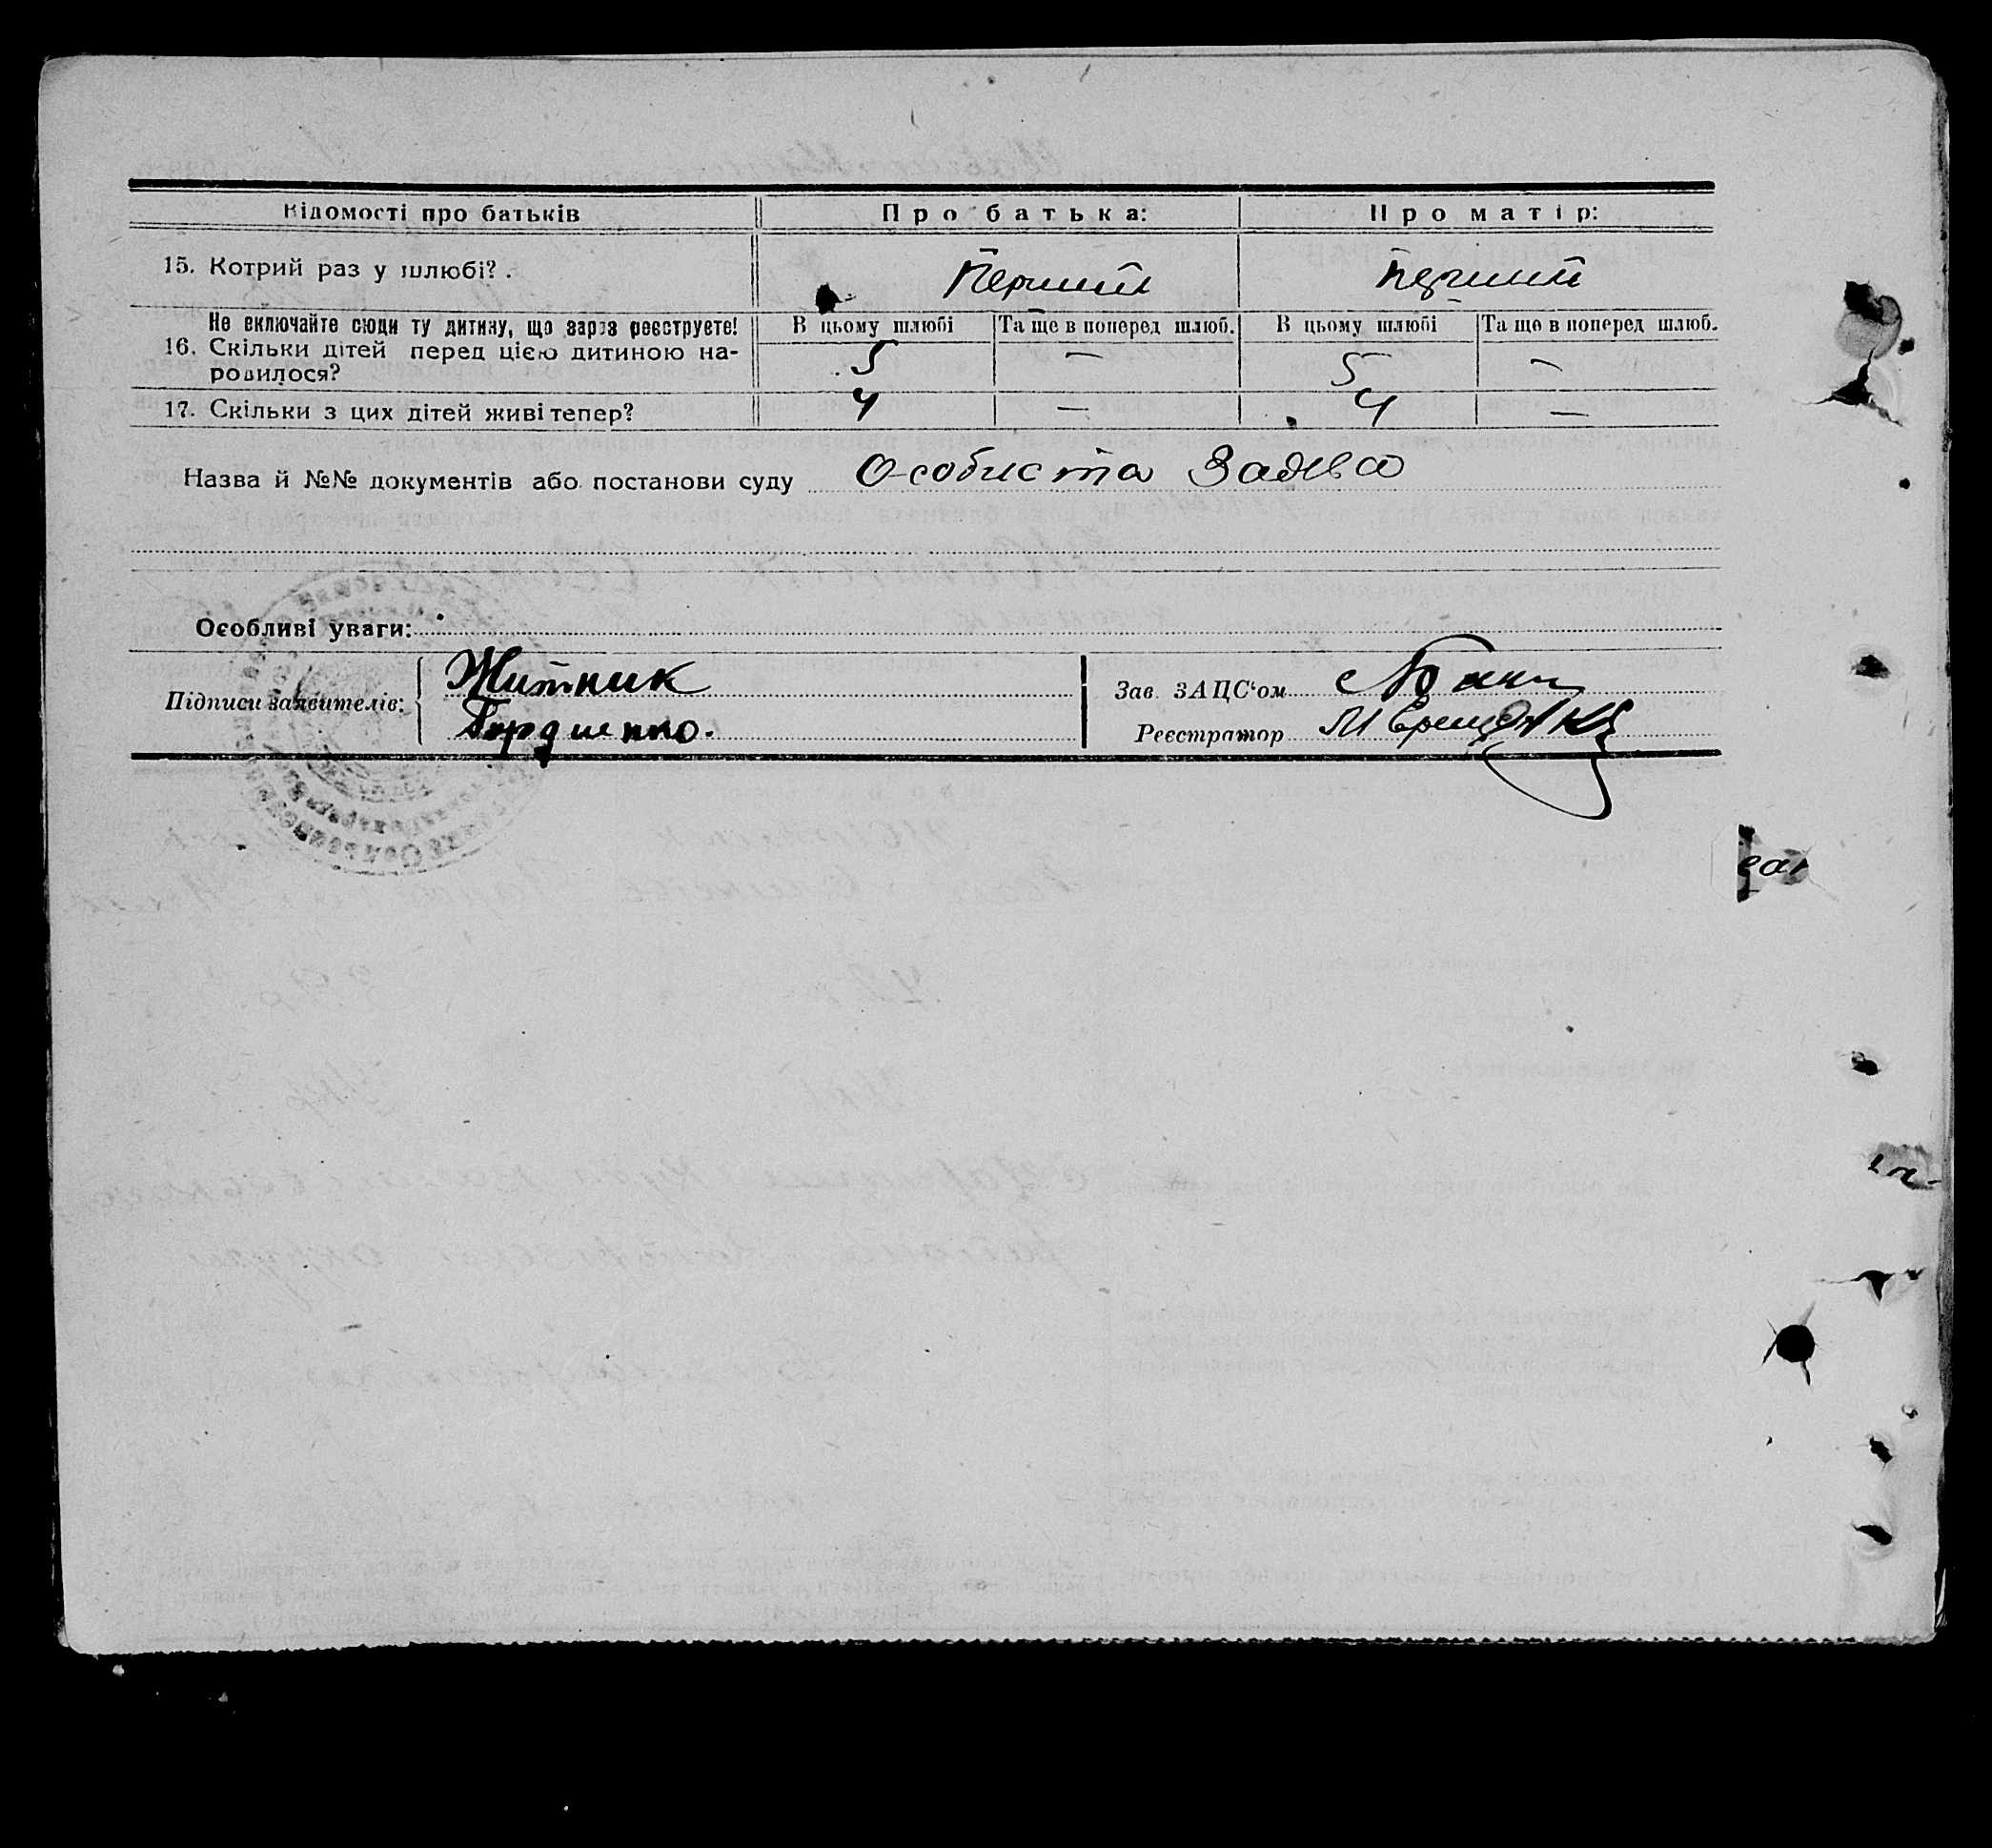 Відомості про батьків Про батька: Про матір:
15. Котрий раз у шлюбі? . Перший Перший
Не включайте сюди ту дитину, що зараз реєструєте! В цьому шлюбі Та ще в поперед шлюб. В цьому шлюбі Та ще в поперед шлюб.
16. Скільки дітей перед цією дитиною на-
родилося? 5 — 5 —
17. Скільки з цих дітей живі тепер? 4 — 4 —
Назва й №№ документів або постанови суду Особиста Заява
Особливі уваги:
Підписи заявителів: Житник
Гордиенко.
Зав. ЗАЦС‘ом
Реєстратор